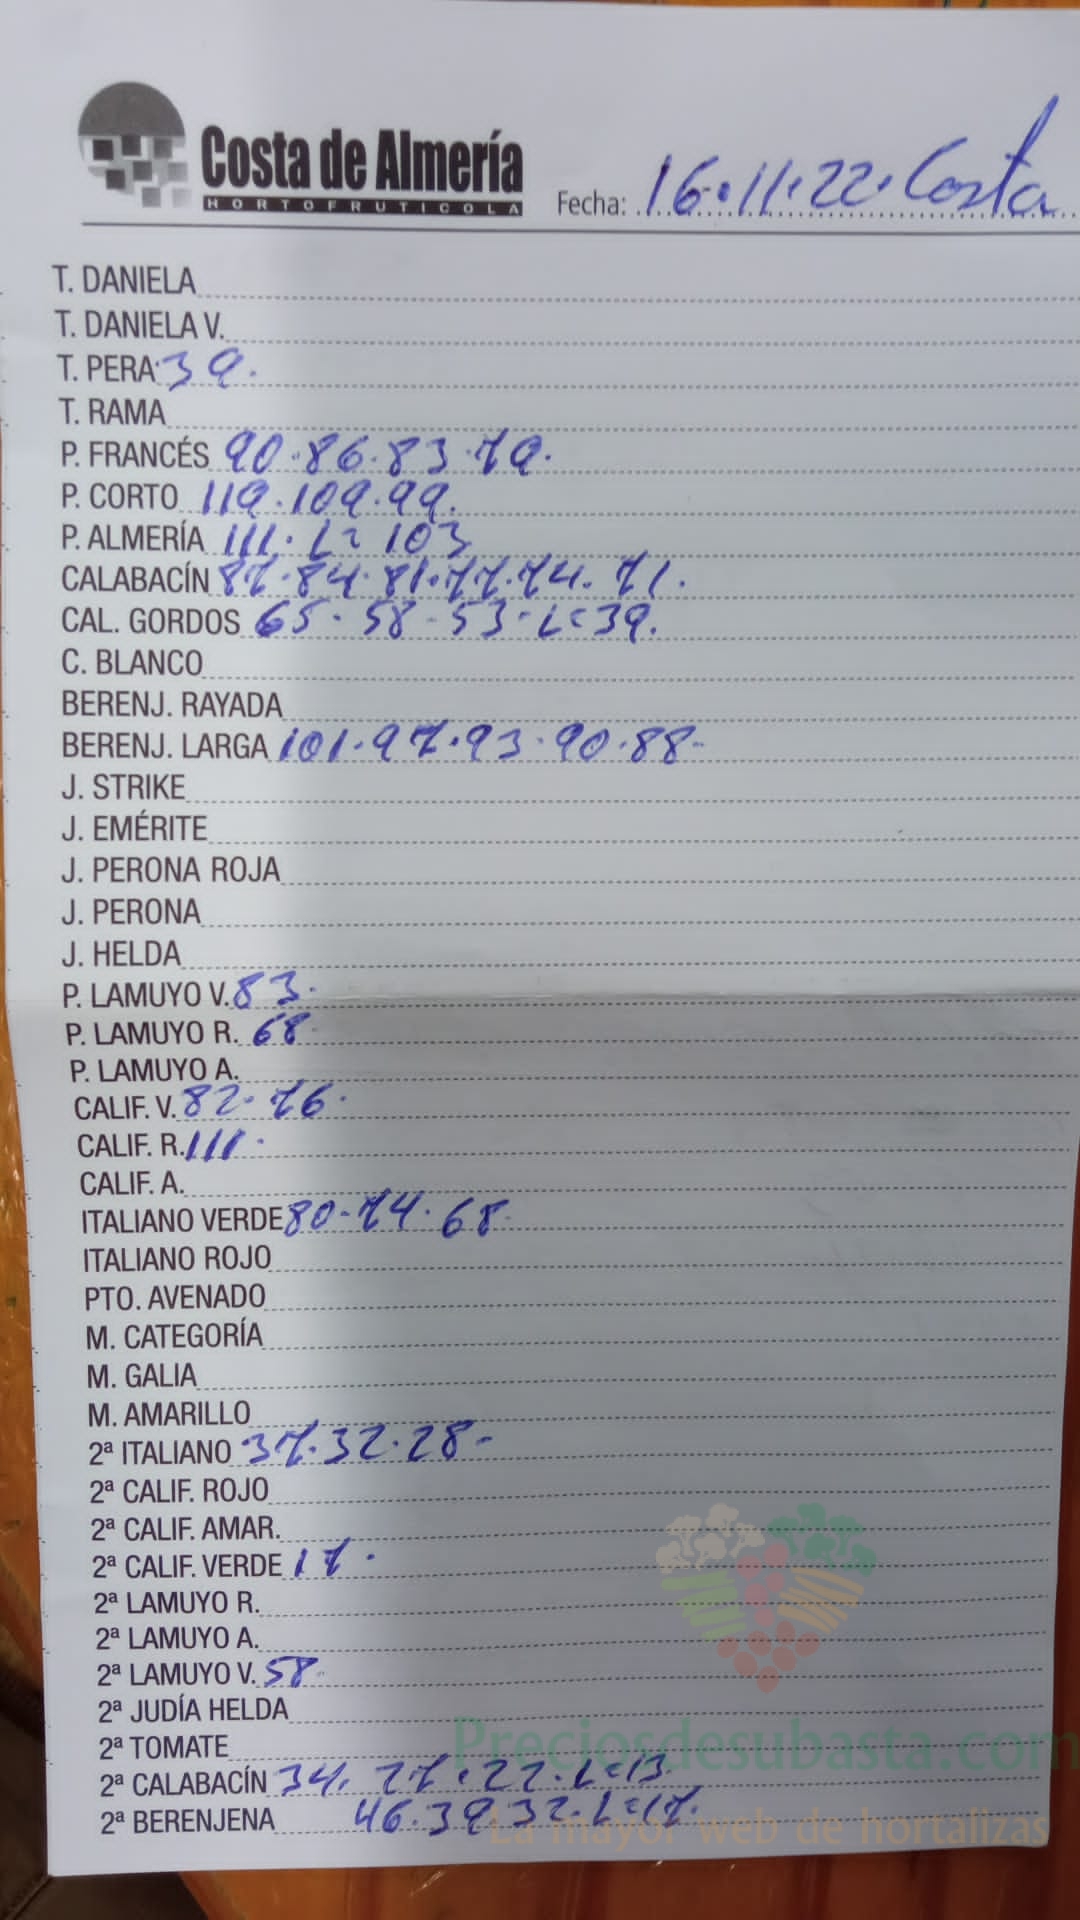 Costa de Almería
HORTOFRUTICOLA
Fecha: 16.11.22. Costa
T. DANIELA
T. DANIELA V.
T. PERA 39.
T. RAMA
P. FRANCÉS 90.86.83.79.
P. CORTO 119.109.99.
P. ALMERÍA 111. L= 103
CALABACÍN 87.84.81.77.74.71.
CAL. GORDOS 65.58-53-L=39.
C. BLANCO
BERENJ. RAYADA
BERENJ. LARGA 101.97.93.90.88-
J. STRIKE
J. EMÉRITE
J. PERONA ROJA
J. PERONA
J. HELDA
P. LAMUYO V. 83.
P. LAMUYO R. 68.
P. LAMUYO A.
CALIF. V. 82.76.
CALIF. R. 111.
CALIF. A.
ITALIANO VERDE 80-74.68.
ITALIANO ROJO
PTO. AVENADO
M. CATEGORÍA
M. GALIA
M. AMARILLO
2ª ITALIANO 37.32.28-
2ª CALIF. ROJO
2ª CALIF. AMAR.
2ª CALIF. VERDE 17.
2ª LAMUYO R.
2ª LAMUYO A.
2ª LAMUYO V. 58-
2ª JUDÍA HELDA
2ª TOMATE
Preciosdesubasta.com
2ª CALABACÍN 34. 27.22.L=13.
2ª BERENJENA 46.39.32.L=17.
La mayor web de hortalizas